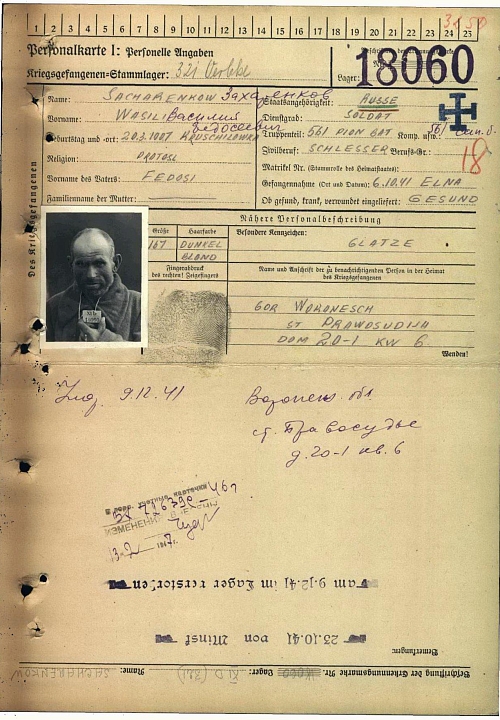 1 2 3 4 5 6 7 8 9 10 11 12 13 14 15 16 17 18 19 20 21 22 23 24 25
Personalkarte I: Personelle Angaben
Kriegsgefangenen-Stammlager: 321
Lager: 18060
Des Kriegsgefangenen
Name: SACHARENKOW Захаренков
Vorname: WASILI Василий
Федосеевич
Geburtstag und -ort: 20.3.1907
Religion:
Vorname des Vaters: FEDOSI
Familienname der Mutter:
Staatsangehörigkeit: RUSSE
Dienstgrad: SOLDAT
Truppenteil: 561 PION BAT Komp. usw.: 561
Zivilberuf: SCHLESSER Berufs-Gr.: 18
Matrikel Nr. (Stammrolle des Heimatstaates):
Gefangennahme (Ort und Datum): 6.10.41 ELNA
Ob gesund, krank, verwundet eingeliefert: GESUND
Nähere Personalbeschreibung
Größe Haarfarbe Besondere Kennzeichen:
167 DUNKEL BLOND GLATZE
Fingerabdruck
des rechten! Zeigefingers
Name und Anschrift der zu benachrichtigenden Person in der Heimat
des Kriegsgefangenen
GOR WORONESCH
ST PRAWOSUDIJA
DOM 20-1 KW 6
Wenden!
9.12.41
Воронеж. обл.
ст. Правосудье
д. 20-1 кв. 6
учетные карточки
ИЗМЕНЕНИЯ ВНЕСЕНЫ
13-2 1947 г.
am 9.12.41 im Lager verstorben
25.10.41 von Minsk
Bemerkungen:
Beschriftung der Erkennungsmarke Nr. Lager: XI D (321) Name: SACHARENKOW